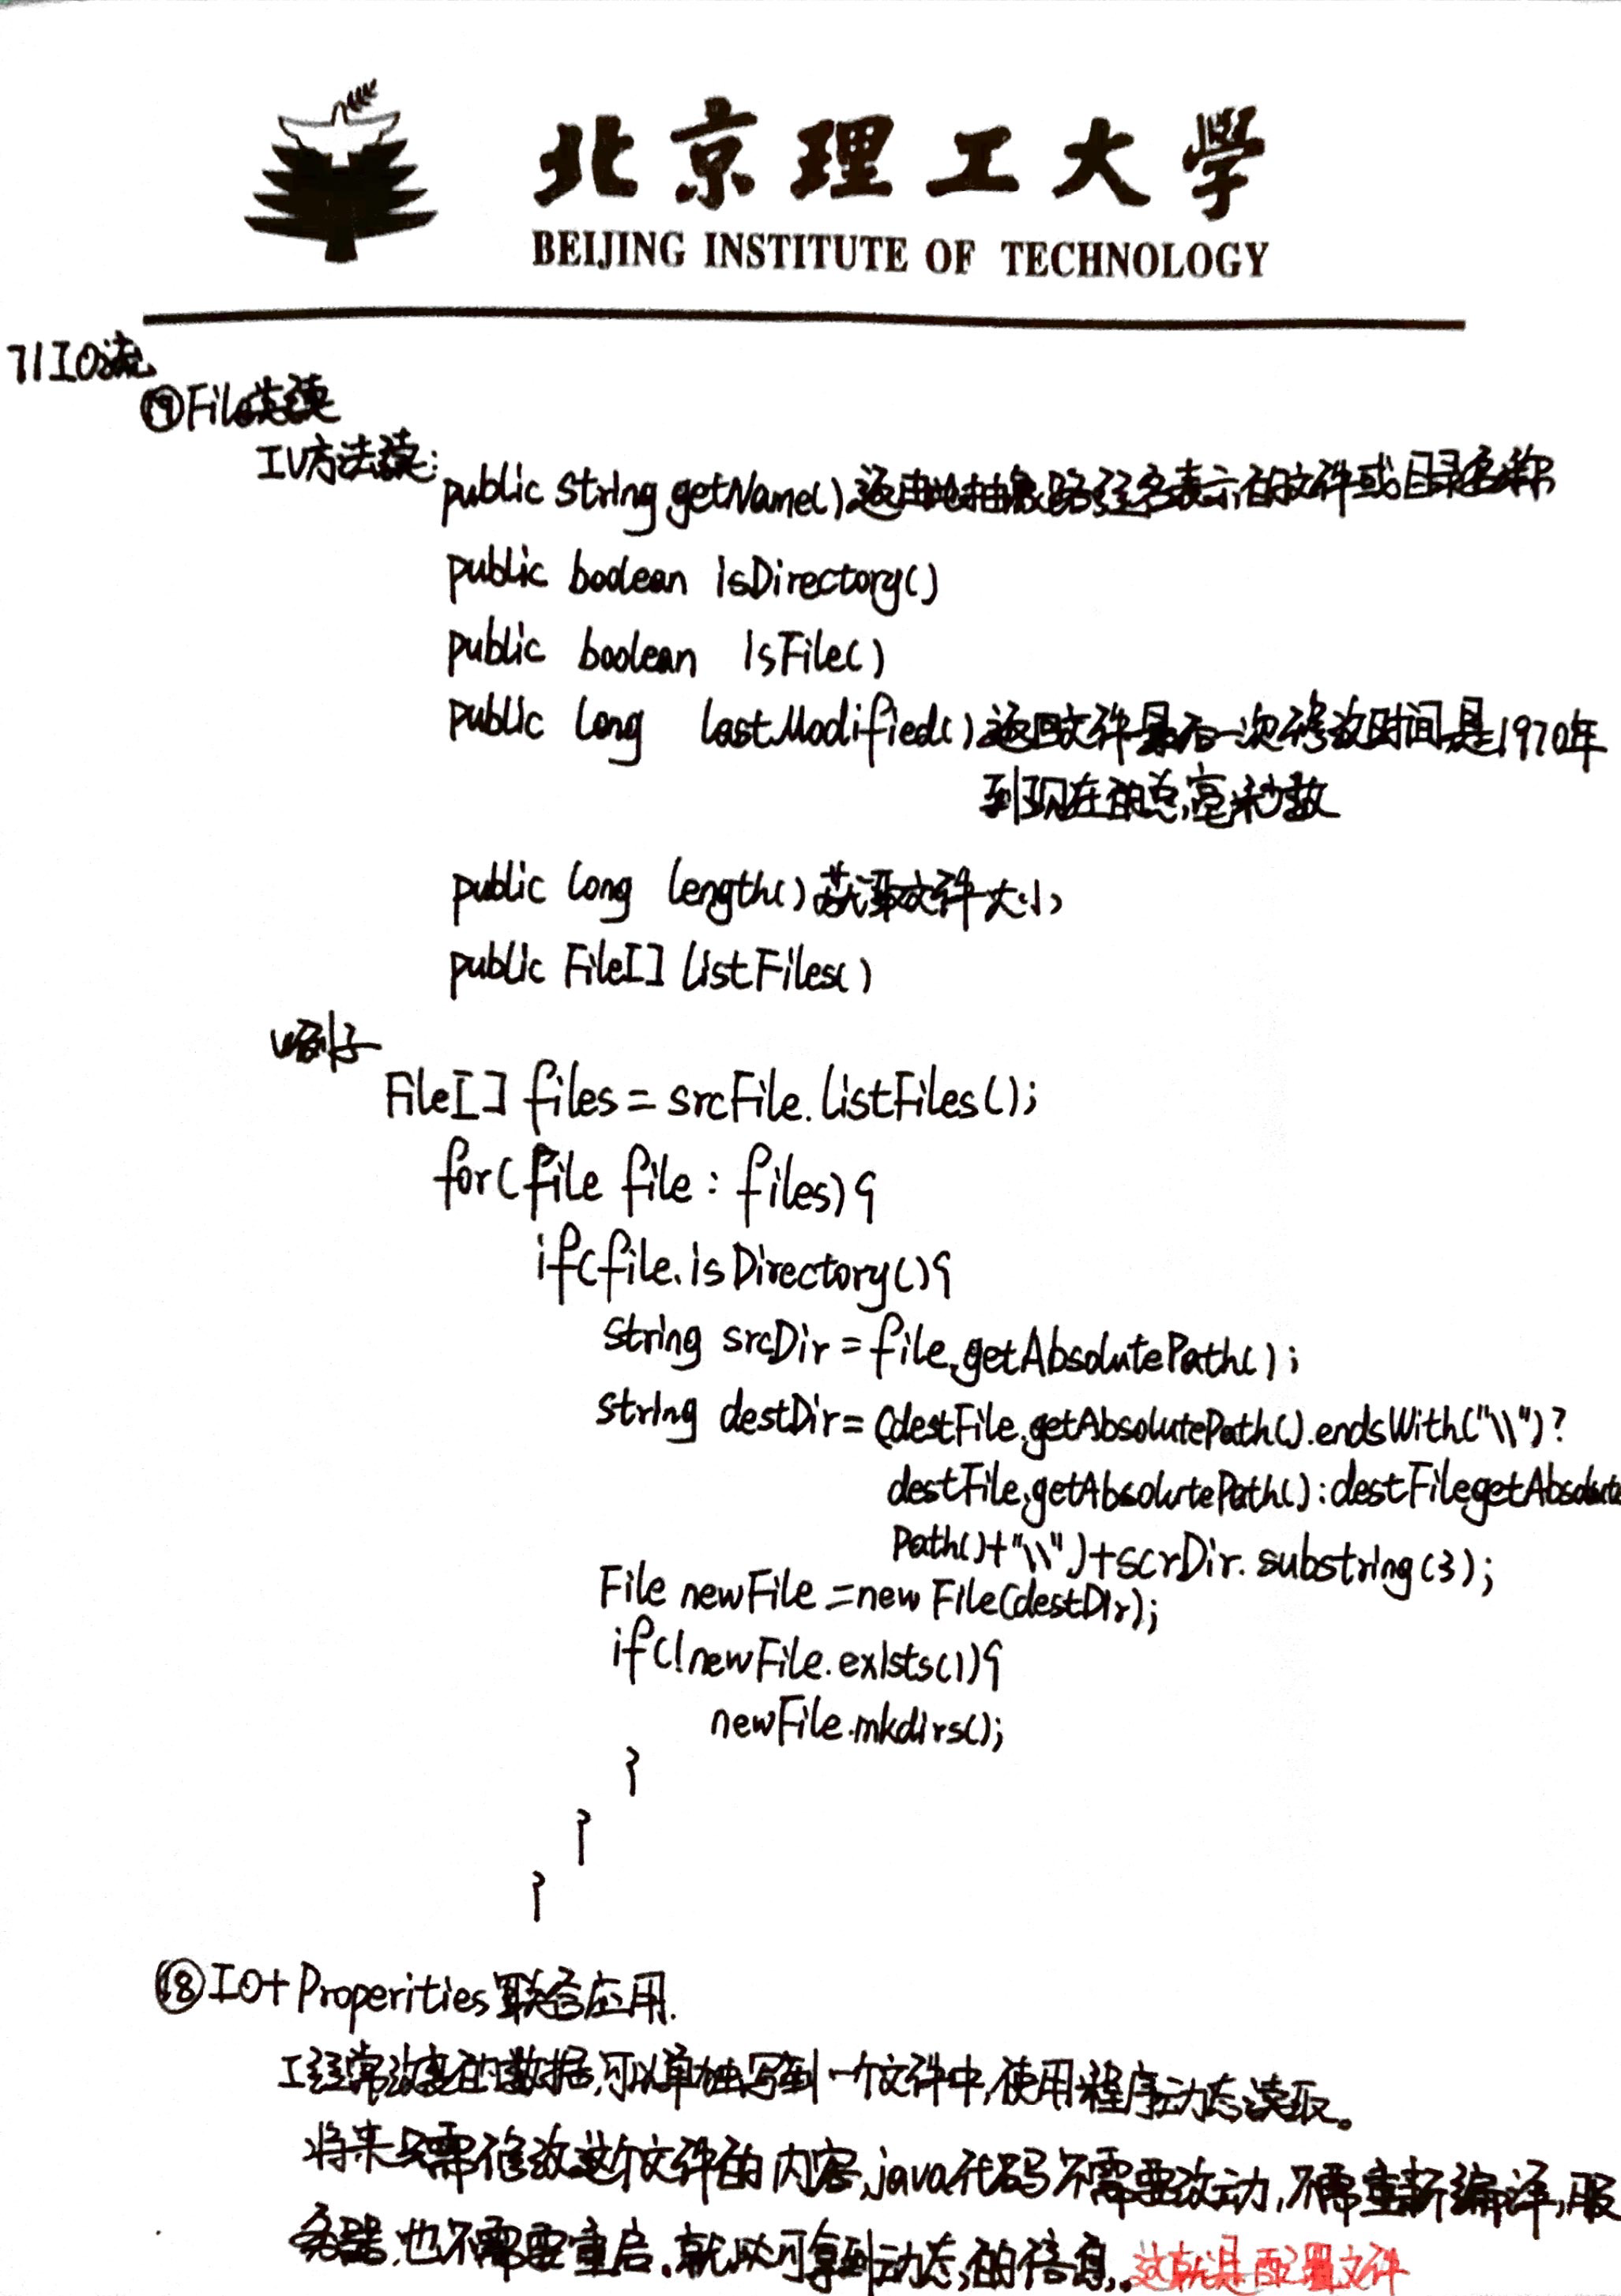 北京理工大学
BEIJING INSTITUTE OF TECHNOLOGY
71 IO流
File类续
IV方法续:
public String getName()返由此抽象路径名表示的文件或目录名称
public boolean isDirectory()
public boolean isFile()
public long lastModified()返回文件最后一次修改时间,是1970年
到现在的总毫秒数
public long length()获取文件大小
public File[] listFiles()
V例子
File[] files = srcFile.listFiles();
for(File file : files){
if(file.isDirectory(){
String srcDir = file.getAbsolutePath();
String destDir= (destFile.getAbsolutePath().endsWith("\\")?
destFile.getAbsolutePath():destFile.getAbsolute
Path()+"\\")+scrDir.substring(3);
File newFile =new File(destDir);
if(!newFile.exists()){
newFile.mkdirs();
}
}
}
⑱IO+Properities联合应用.
I经常改变的数据,可以单独写到一个文件中,使用程序动态读取。
将来只需修改这个文件的内容,java代码不需要改动,不需重新编译,服
务器,也不需要重启.就以可拿到动态的信息,.这就是配置文件